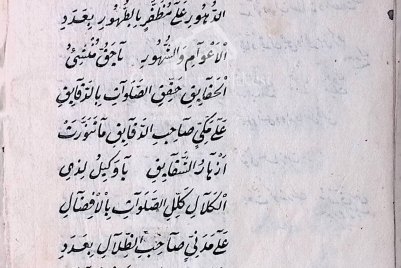 الدُّهُورِ عَلٰى مُظَفَّرٍ بِالظُّهُورِ بِعَدَدِ
الْاَعْوَامِ وَالشُّهُورِ يَا حَقُّ مُنْشِئُ
الْحَقَايِقِ حَقِّقِ الصَّلَوَاتِ بِالدَّقَايِقِ
عَلٰى مَكِّيٍّ صَاحِبِ الدَّقَايِقِ مَا تَنَوَّرَتْ
اَزْهَارُ الشَّقَايِقِ يَا وَكِيلُ لِذِى
الْكَلَالِ كَلِّلِ الصَّلَوَاتِ بِالْاِفْضَالِ
عَلٰى مَدَنِيٍّ صَاحِبِ الظِّلَالِ بِعَدَدِ